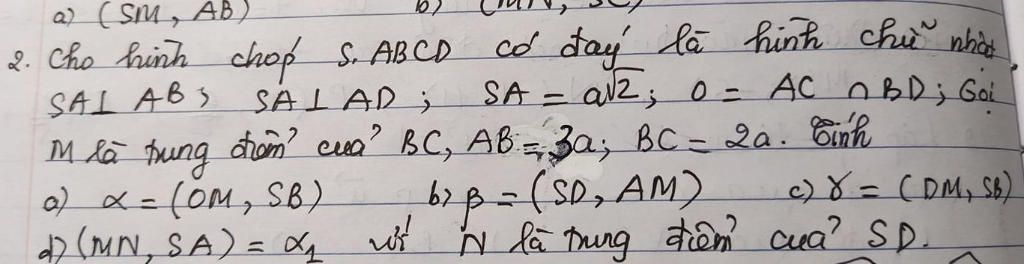 a) (SM, AB) b) (MN, SC)
2. Cho hình chóp S.ABCD có đáy là hình chữ nhật,
SA⊥AB; SA⊥AD; SA = a√2; O = AC ∩ BD; Gọi
M là trung điểm của BC, AB = 3a; BC = 2a. Tính
a) α = (OM, SB) b) β = (SD, AM) c) γ = (DM, SB)
d) (MN, SA) = α₁ với N là trung điểm của SD.